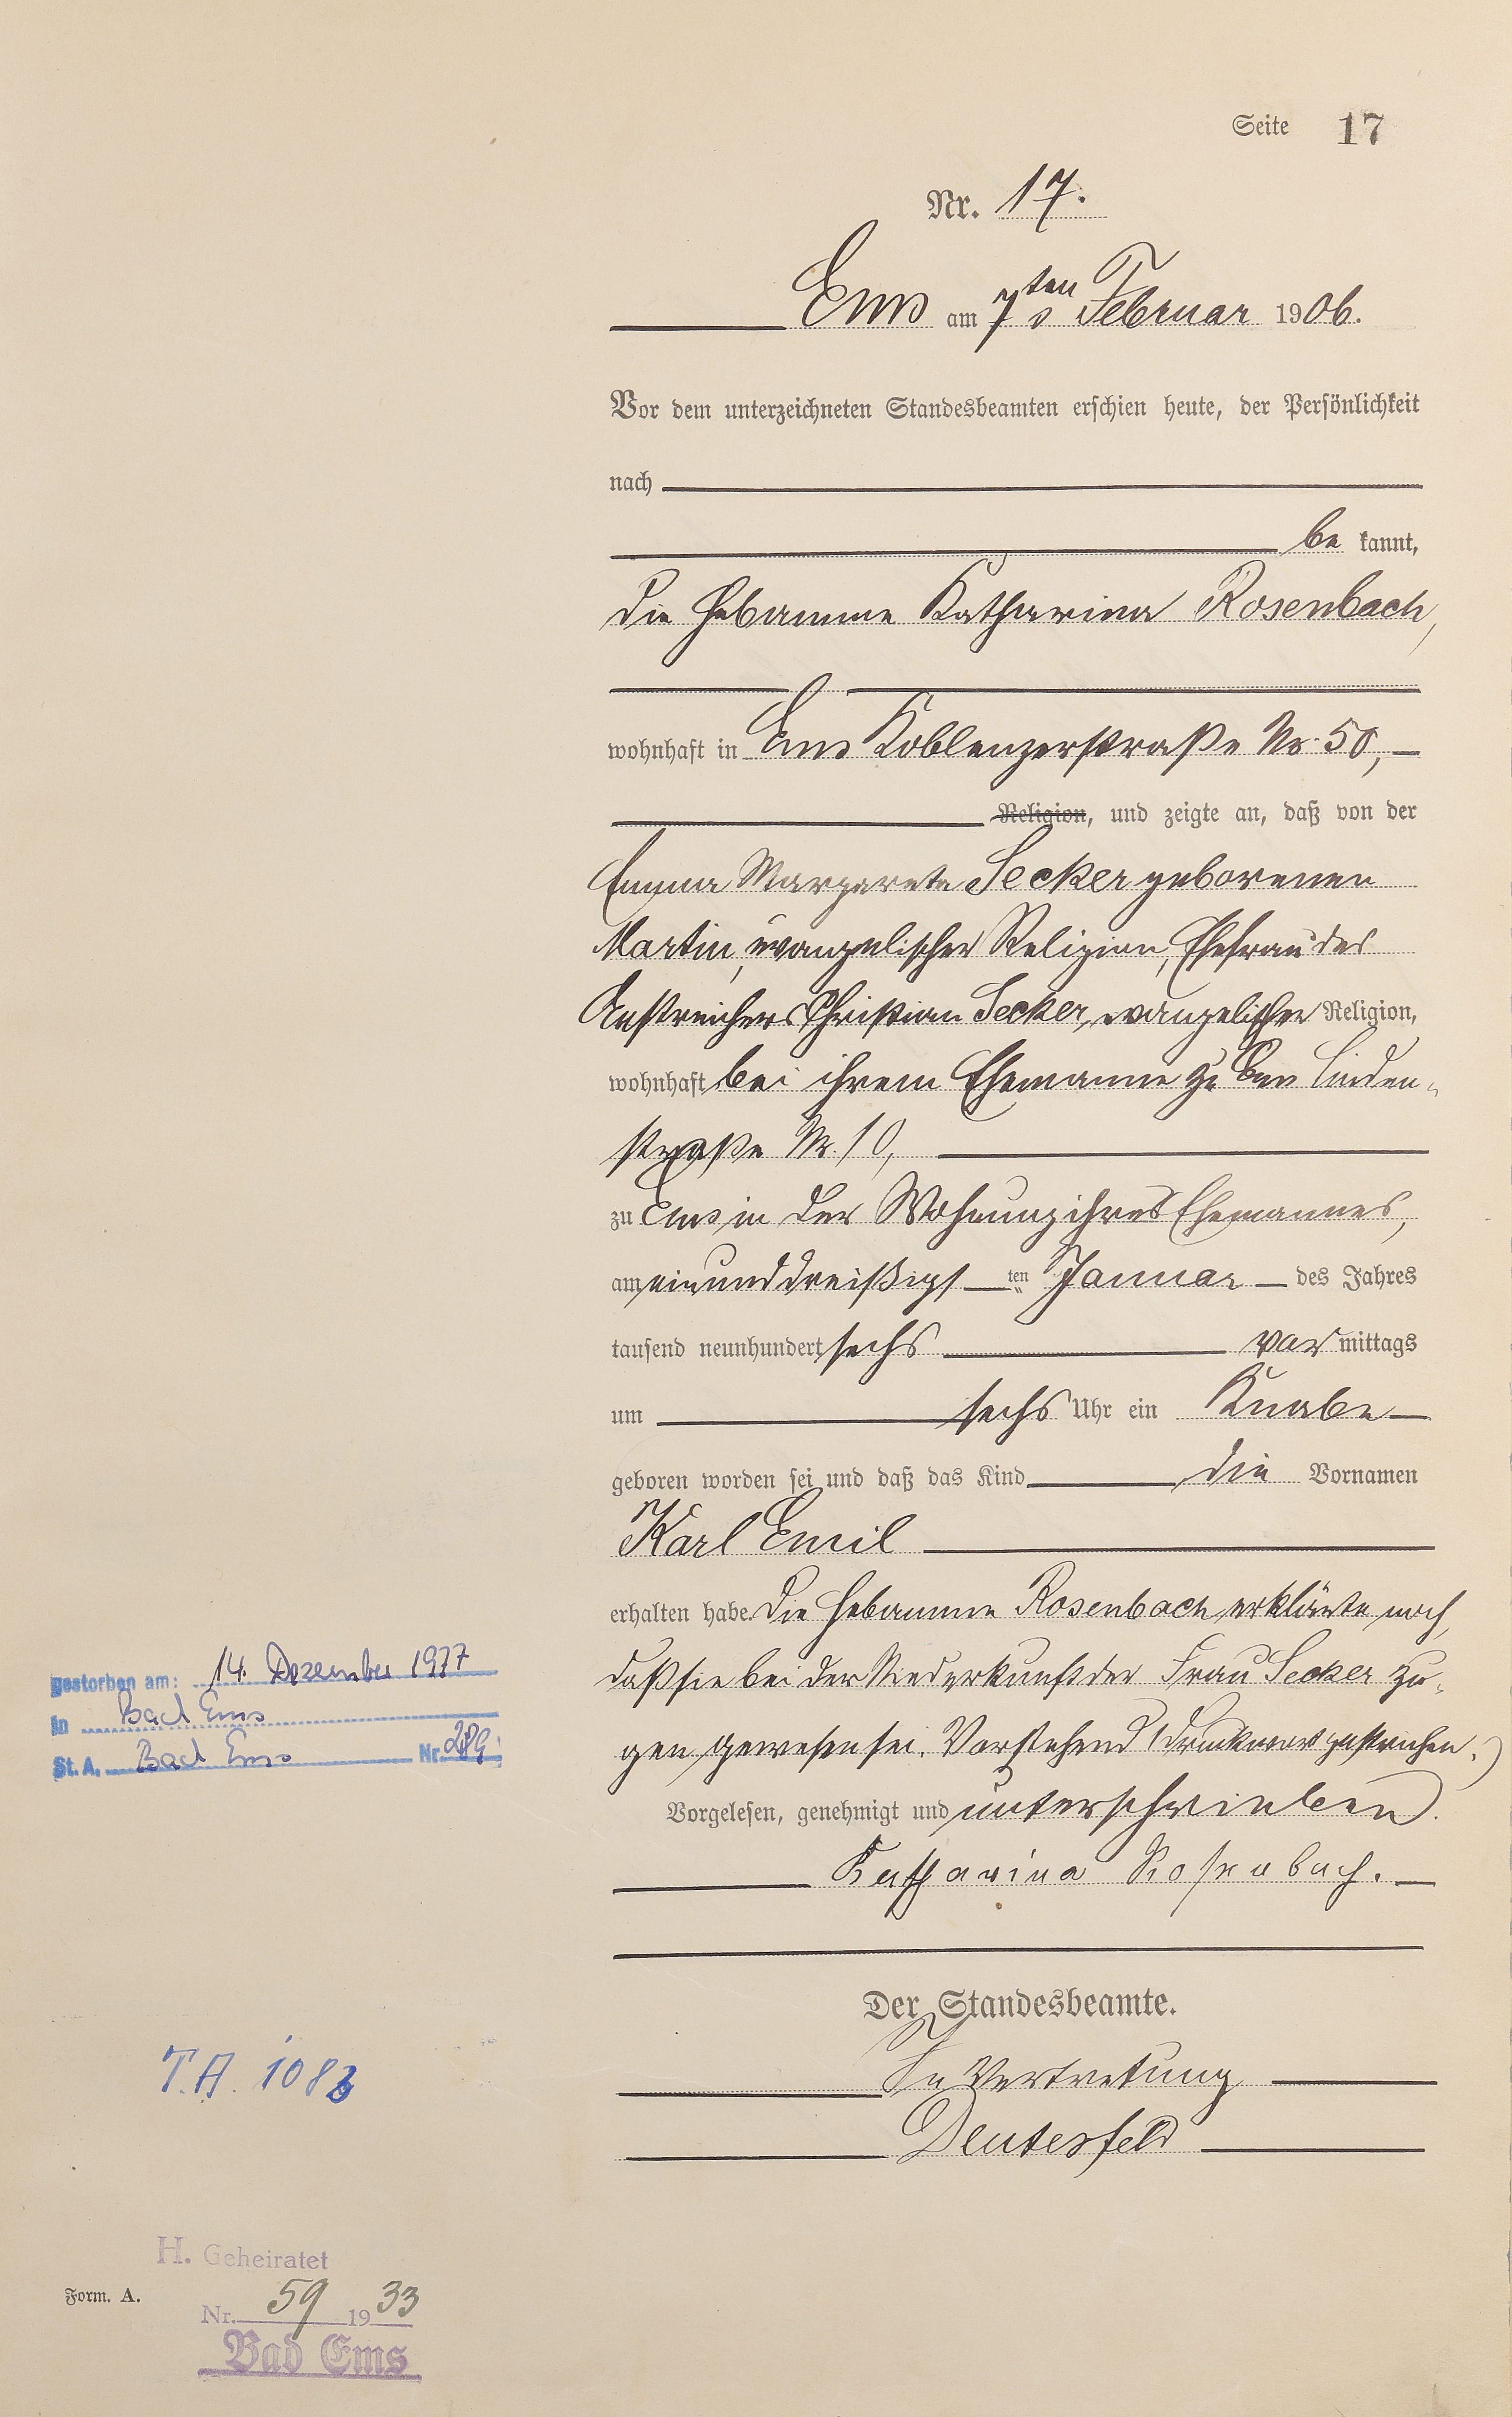 Seite 17
Nr. 17.
Ems am 7ten Februar 1906.
Vor dem unterzeichneten Standesbeamten erschien heute, der Persönlichkeit
nach
be kannt,
die Hebamme Katharina Rosenbach,
wohnhaft in Ems Koblenzerstraße Nr. 50,
Religion, und zeigte an, daß von der
Emma Margarete Secker geborenen
Martin, evangelischer Religion, Ehefrau des
Anstreichers Christian Secker, evangelischer Religion,
wohnhaft bei ihrem Ehemanne zu Ems Linden-
straße Nr. 10,
zu Ems in der Wohnung ihres Ehemannes,
am einunddreißigs ten Januar des Jahres
tausend neunhundert sechs vor mittags
um sechs Uhr ein Knabe
geboren worden sei und daß das Kind die Vornamen
Karl Emil
erhalten habe. Die Hebamme Rosenbach erklärte noch,
daß sie bei der Niederkunft der Frau Secker zu-
gen gewesen sei. Vorstehend 1 Druckwort gestrichen.
Vorgelesen, genehmigt und unterschrieben.
Katharina Rosenbach.
Der Standesbeamte.
In Vertretung
Deutesfeld
gestorben am: 14. Dezember 1977
in Bad Ems
St. A. Bad Ems Nr. 289
T.A. 1083
H. Geheiratet
Form. A.
Nr. 59 1933
Bad Ems